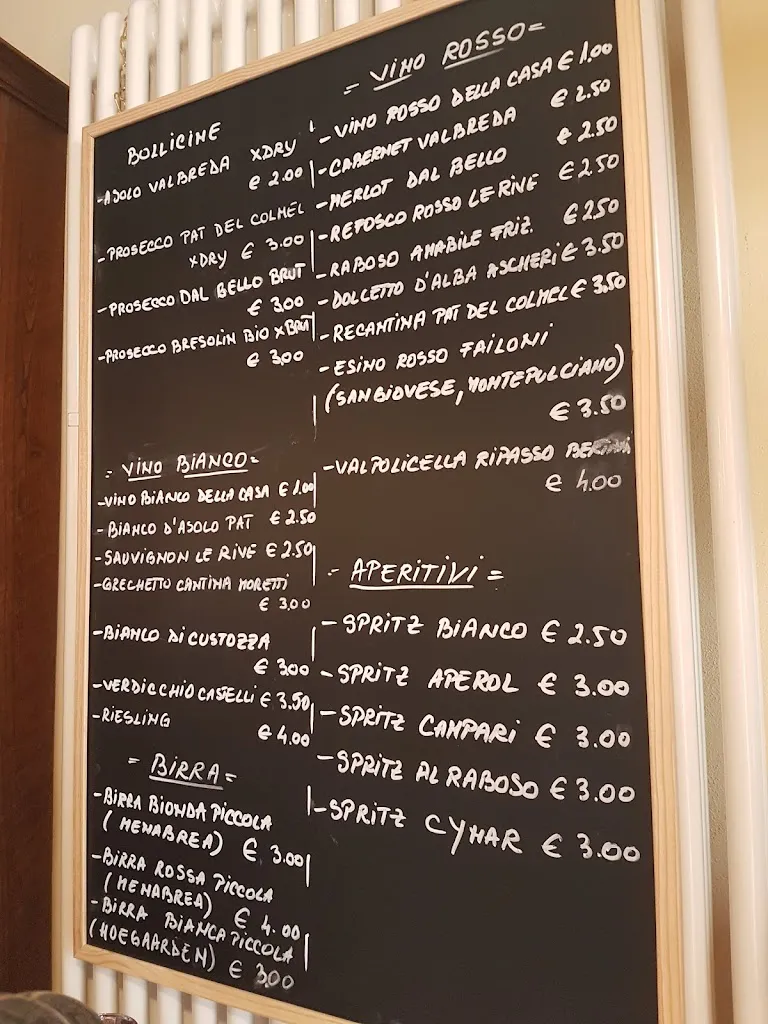 BOLLICINE
-ASOLO VALBREDA XDRY
€ 2.00
-PROSECCO PAT DEL COLMEL
XDRY € 3.00
-PROSECCO DAL BELLO BRUT
€ 3.00
-PROSECCO BRESOLIN BIO XBRUT
€ 3,00
= VINO BIANCO=
-VINO BIANCO DELLA CASA € 1.00
- BIANCO D'ASOLO PAT € 2.50
- SAUVIGNON LE RIVE € 2.50
-GRECHETTO CANTINA MORETTI
€ 3,00
-BIANCO DI CUSTOZZA
€ 3.00
-VERDICCHIO CASTELLI € 3.50
-RIESLING € 4.00
= BIRRA=
-BIRRA BIONDA PICCOLA
(MENABREA) € 3.00
-BIRRA ROSSA PICCOLA
(MENABREA) € 4.00
-BIRRA BIANCA PICCOLA
(HOEGAARDEN) € 3.00
= VINO ROSSO=
-VINO ROSSO DELLA CASA € 1.00
-CABERNET VALBREDA € 2.50
-MERLOT DAL BELLO € 2.50
-REFOSCO ROSSO LE RIVE € 2.50
-RABOSO AMABILE FRIZ. € 2.50
-DOLCETTO D'ALBA ASCHERI € 3.50
-RECANTINA PAT DEL COLMEL € 3.50
-ESINO ROSSO FAILONI
(SANGIOVESE, MONTEPULCIANO)
€ 3.50
-VALPOLICELLA RIPASSO
€ 4.00
= APERITIVI=
-SPRITZ BIANCO € 2.50
-SPRITZ APEROL € 3.00
-SPRITZ CAMPARI € 3.00
-SPRITZ AL RABOSO € 3.00
-SPRITZ CYNAR € 3.00